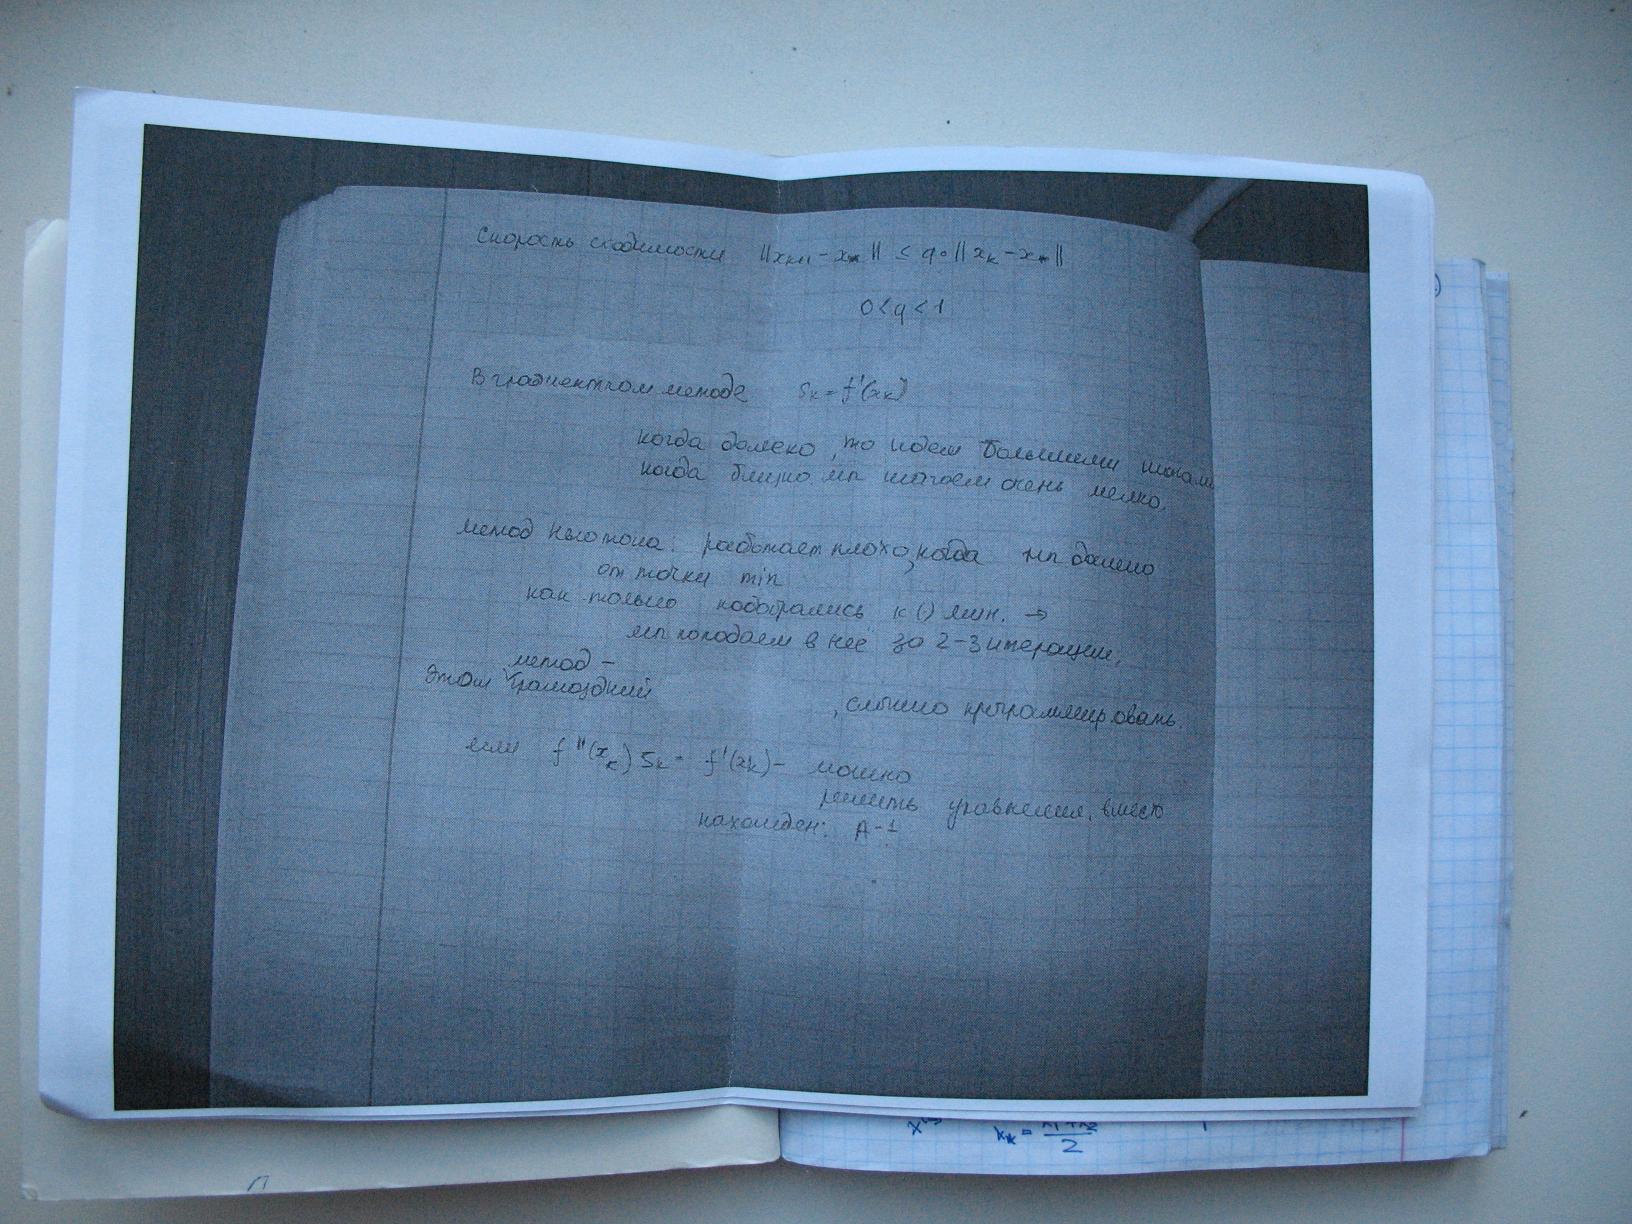 Скорость сходимости ||xk+1 - x*|| ≤ q·||xk - x*||
0 < q < 1
В градиентном методе Sk = f'(xk)
когда далеко, то идем большими шагами
когда близко мы шагаем очень мелко.
метод Ньютона: работает плохо, когда мы далеко
от точки min
как только добрались к (·) мин. →
мы попадаем в неё за 2-3 итерации.
метод -
Этот громоздкий , сложно программировать.
если f''(xk) Sk = f'(xk) - можно
решить уравнения, вместо
нахожден: A-1
xk = x1+x2
2